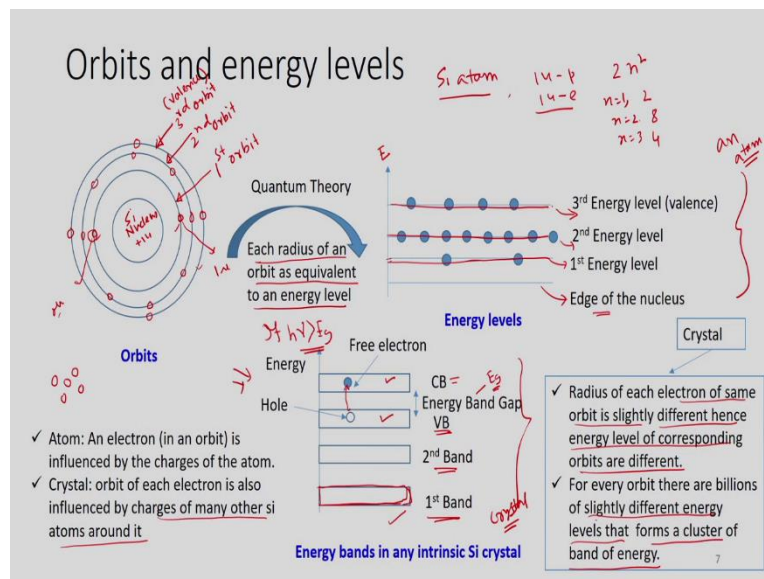 Orbits and energy levels
Si atom
14-p
14-e
2n²
n=1, 2
n=2 8
n=3 4
an
atom
(valence)
3rd orbit
2nd orbit
1st orbit
Si
Nucleus
+14
Quantum Theory
Each radius of an
orbit as equivalent
to an energy level
E
3rd Energy level (valence)
2nd Energy level
1st Energy level
Edge of the nucleus
Orbits
Energy levels
If hν>Eg
Free electron
Energy
Hole
CB =
Eg
Energy Band Gap
VB
2nd Band
1st Band
crystal
Energy bands in any intrinsic Si crystal
✓ Atom: An electron (in an orbit) is
influenced by the charges of the atom.
✓ Crystal: orbit of each electron is also
influenced by charges of many other si
atoms around it
Crystal
✓ Radius of each electron of same
orbit is slightly different hence
energy level of corresponding
orbits are different.
✓ For every orbit there are billions
of slightly different energy
levels that forms a cluster of
band of energy.
7